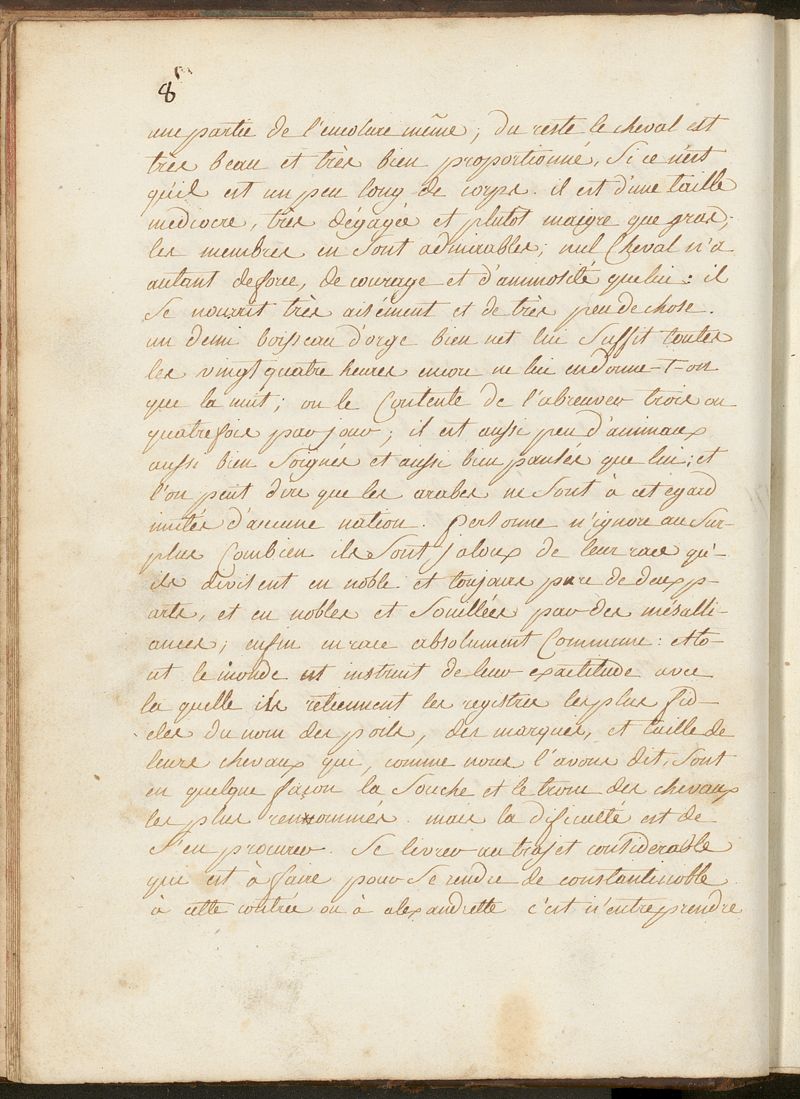 8
une partie de l'encolure même; du reste le cheval est
très beau et très bien proportionné, Si ce n'est
qu'il est un peu long de corps. il est d'une taille
mediocre, très dégagée et plutot maigre que gras;
les membres en Sont admirables; nul Cheval n'a
autant deforce, de courage et d'animosité que lui: il
Se nourrit très aisément et de très peu de chose.
un demi boisseau d'orge bien net lui Suffit toutes
les vingt quatre heures encore ne lui en donne-t-on
que la nuit; on le Contente de l'abreuver trois ou
quatre fois par jour; il est aussi peu d'animaux
aussi bien Soignés et aussi bien pansés que lui; et
l'on peut dire que les arabes ne Sont à cet egard
imités d'aucune nation. personne n'ignore au Sur-
plus Combien ils Sont jaloux de leur race qu'-
ils divisent en noble et toujours pure de deux p-
arts, et en nobles et Souillées par des mésalli-
ances; enfin en race absolument Commune: et to-
ut le monde est instruit de leur exactitude avec
la quelle ils retiennent les registres les plus fid-
eles du nom des poils, des marques, et taille de
leurs chevaux qui, comme nous l'avons dit, Sont
en quelque façon la Souche et le tronc des chevaux
les plus renommés. mais la dificulté est de
S'en procurer. Se livrer au trajet considerable
qui est à faire pour Se rendre de constantinoble
à cette contrée ou à alexandrette c'est n'entreprendre